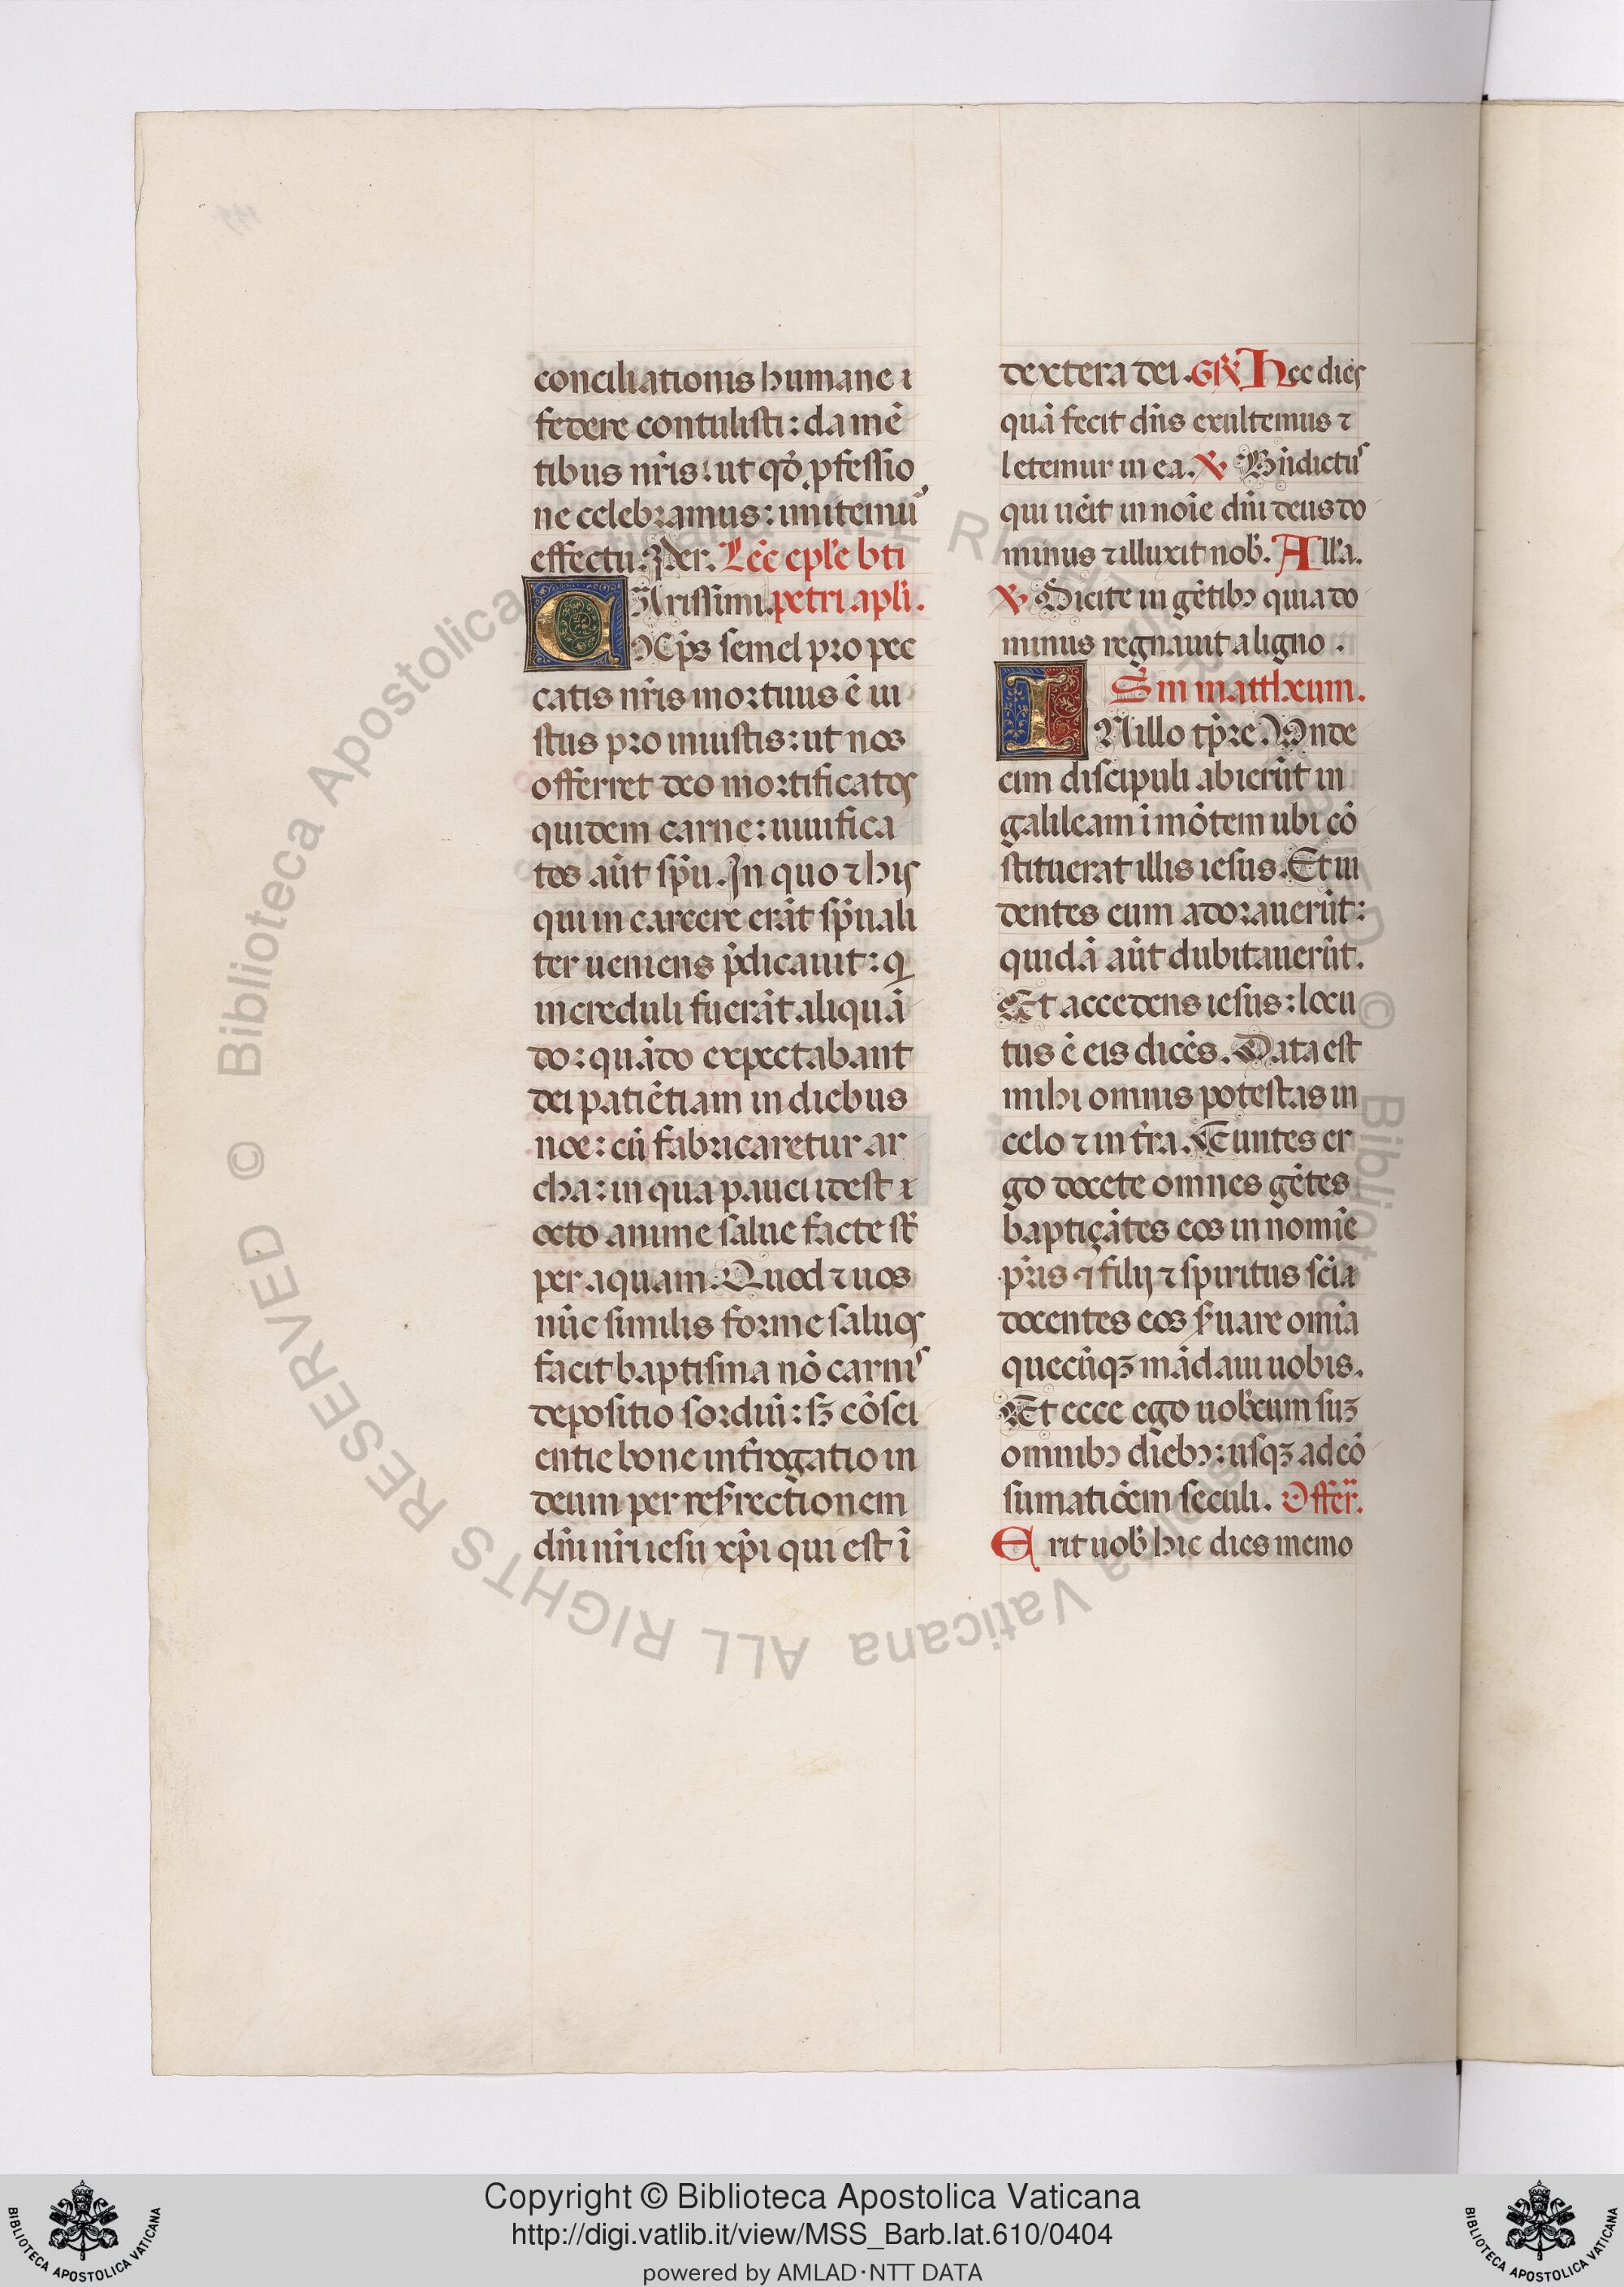 conciliationis humane ı
federe contulisti: da mē
tibus nr̄is: ut qđ ꝓfessio
ne celebramus: imitemur
effectu. Per. Lēc epl̄e bt̄i
CArissimi. petri apl̄i.
Xp̄s semel pro pec
catis nr̄is mortuus ē iu
stus pro iniustis: ut nos
offerret deo mortificatos
quidem carne: uiuifica
tos aūt sp̄u. In quo ⁊ his
qui in carcere erāt sp̄uali
ter ueniens p̄dicauit: q
increduli fuerāt aliquā
do: quādo expectabant
dei patiētiam in diebus
noe: cū fabricaretur ar
cha: in qua pauci idest ı
octo anime salue facte st̄
per aquam. Quod ⁊ uos
nūc similis forme saluos
facit baptisma nō carnis
depositio sordiū: sꝫ cōsci
entie bone int̄rogatio in
deum per resr̄rectionem
dn̄i nr̄i iesu xp̄i qui est ī
dextera dei. GR̄ Hec dies
quā fecit dn̄s exultemus ⁊
letemur in ea. ℣ Bn̄dictus
qui uēit in noīe dn̄i deus do
minus ⁊ illuxit nob̄. All̄a.
℣ Dicite in gētibꝰ quia do
minus regnauit a ligno.
S̄m mattheum.
INillo tp̄re. Unde
cim discipuli abierūt in
galileam ī mōtem ubi cō
stituerat illis iesus. Et ui
dentes eum adorauerūt:
quidā aūt dubitauerūt.
Et accedens iesus: locu
tus ē eis dicēs. Data est
mihi omnis potestas in
celo ⁊ in t̄ra. Euntes er
go docete omnes gētes
baptiçātes eos in nomīe
pr̄is ⁊ filij ⁊ spiritus scīa
docentes eos s̄uare omīa
quecūqꝫ mādaui uobis.
Et ecce ego uob̄cum suꝫ
omnibꝰ diebꝰ: usqꝫ ad cō
sumatiōem seculi. Offer̄.
Erit uob̄ hic dies memo
© Biblioteca Apostolica Vaticana ALL RIGHTS RESERVED
Copyright © Biblioteca Apostolica Vaticana
http://digi.vatlib.it/view/MSS_Barb.lat.610/0404
powered by AMLAD·NTT DATA
BIBLIOTECA APOSTOLICA VATICANA
BIBLIOTECA APOSTOLICA VATICANA